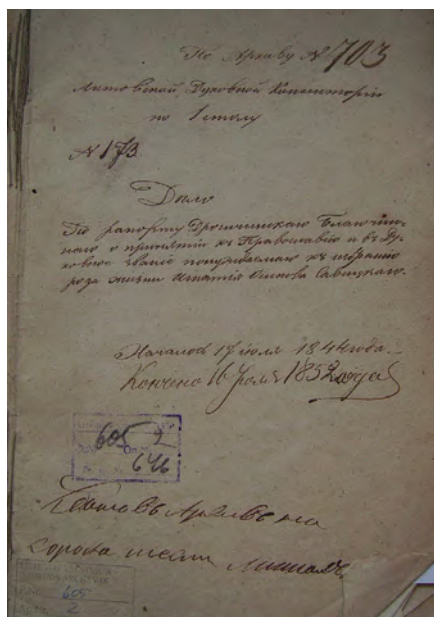 По Архиву № 703
Литовской Духовной Консисторіи
по 1 столу
№ 173.
Дѣло
По рапорту Дрогичинскаго Благочин-
наго о принятіи къ Православію и въ Ду-
ховное званіе понуждаемаго къ избранію
рода жизни Игнатія Савицкаго.
Началось 17 іюля 1844 года.
Кончено 16 Іюля 1852 года
605 2
646
сорока шести листахъ
605
2